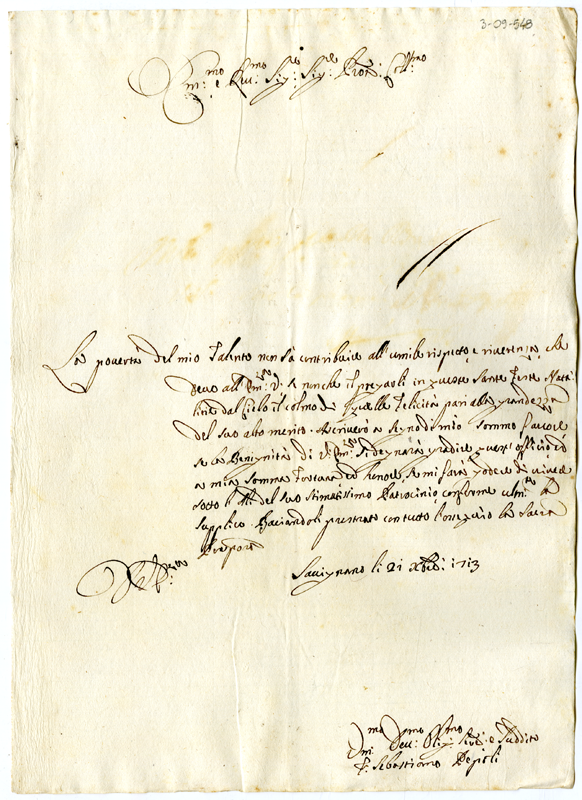 3-09-548
Em:mo e Rev:mo Sig:re Sig:re Pron: Col:mo
La povertà del mio Talento non sà contribuire all'umile rispetto, e riverenza, che
devo all'Em:za V. se non che il pregargli in queste Sante Feste Nata-
litie dal Cielo il colmo di quelle Felicità pari alla grandezza
del suo alto merito. Ascriverò a segno di mio sommo favore
se la Benignità di V. Em:za si degnarà gradire quest'officio ed
a mia somma Fortuna ed honore, se mi farà godere di vivere
sotto l' del suo stimatissimo Patrocinio, conforme la
supplico. Baciandoli prostrato con tutto l'ossequio la Sacra
Porpora
Di V. Em:za
Savignano li 21 Xbre: 1713
Um:mo Dev:mo Obl:mo Ser:e e Suddito
F. Sebastiano Pepoli